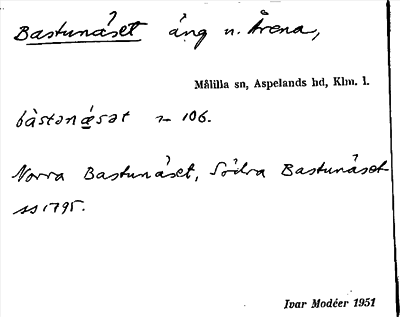 Bastunäset äng n. Årena,
Målilla sn, Aspelands hd, Klm. l.
bàstənǽsət 106.
Norra Bastunäset, Södra Bastunäset
ss 1795.
Ivar Modéer 1951